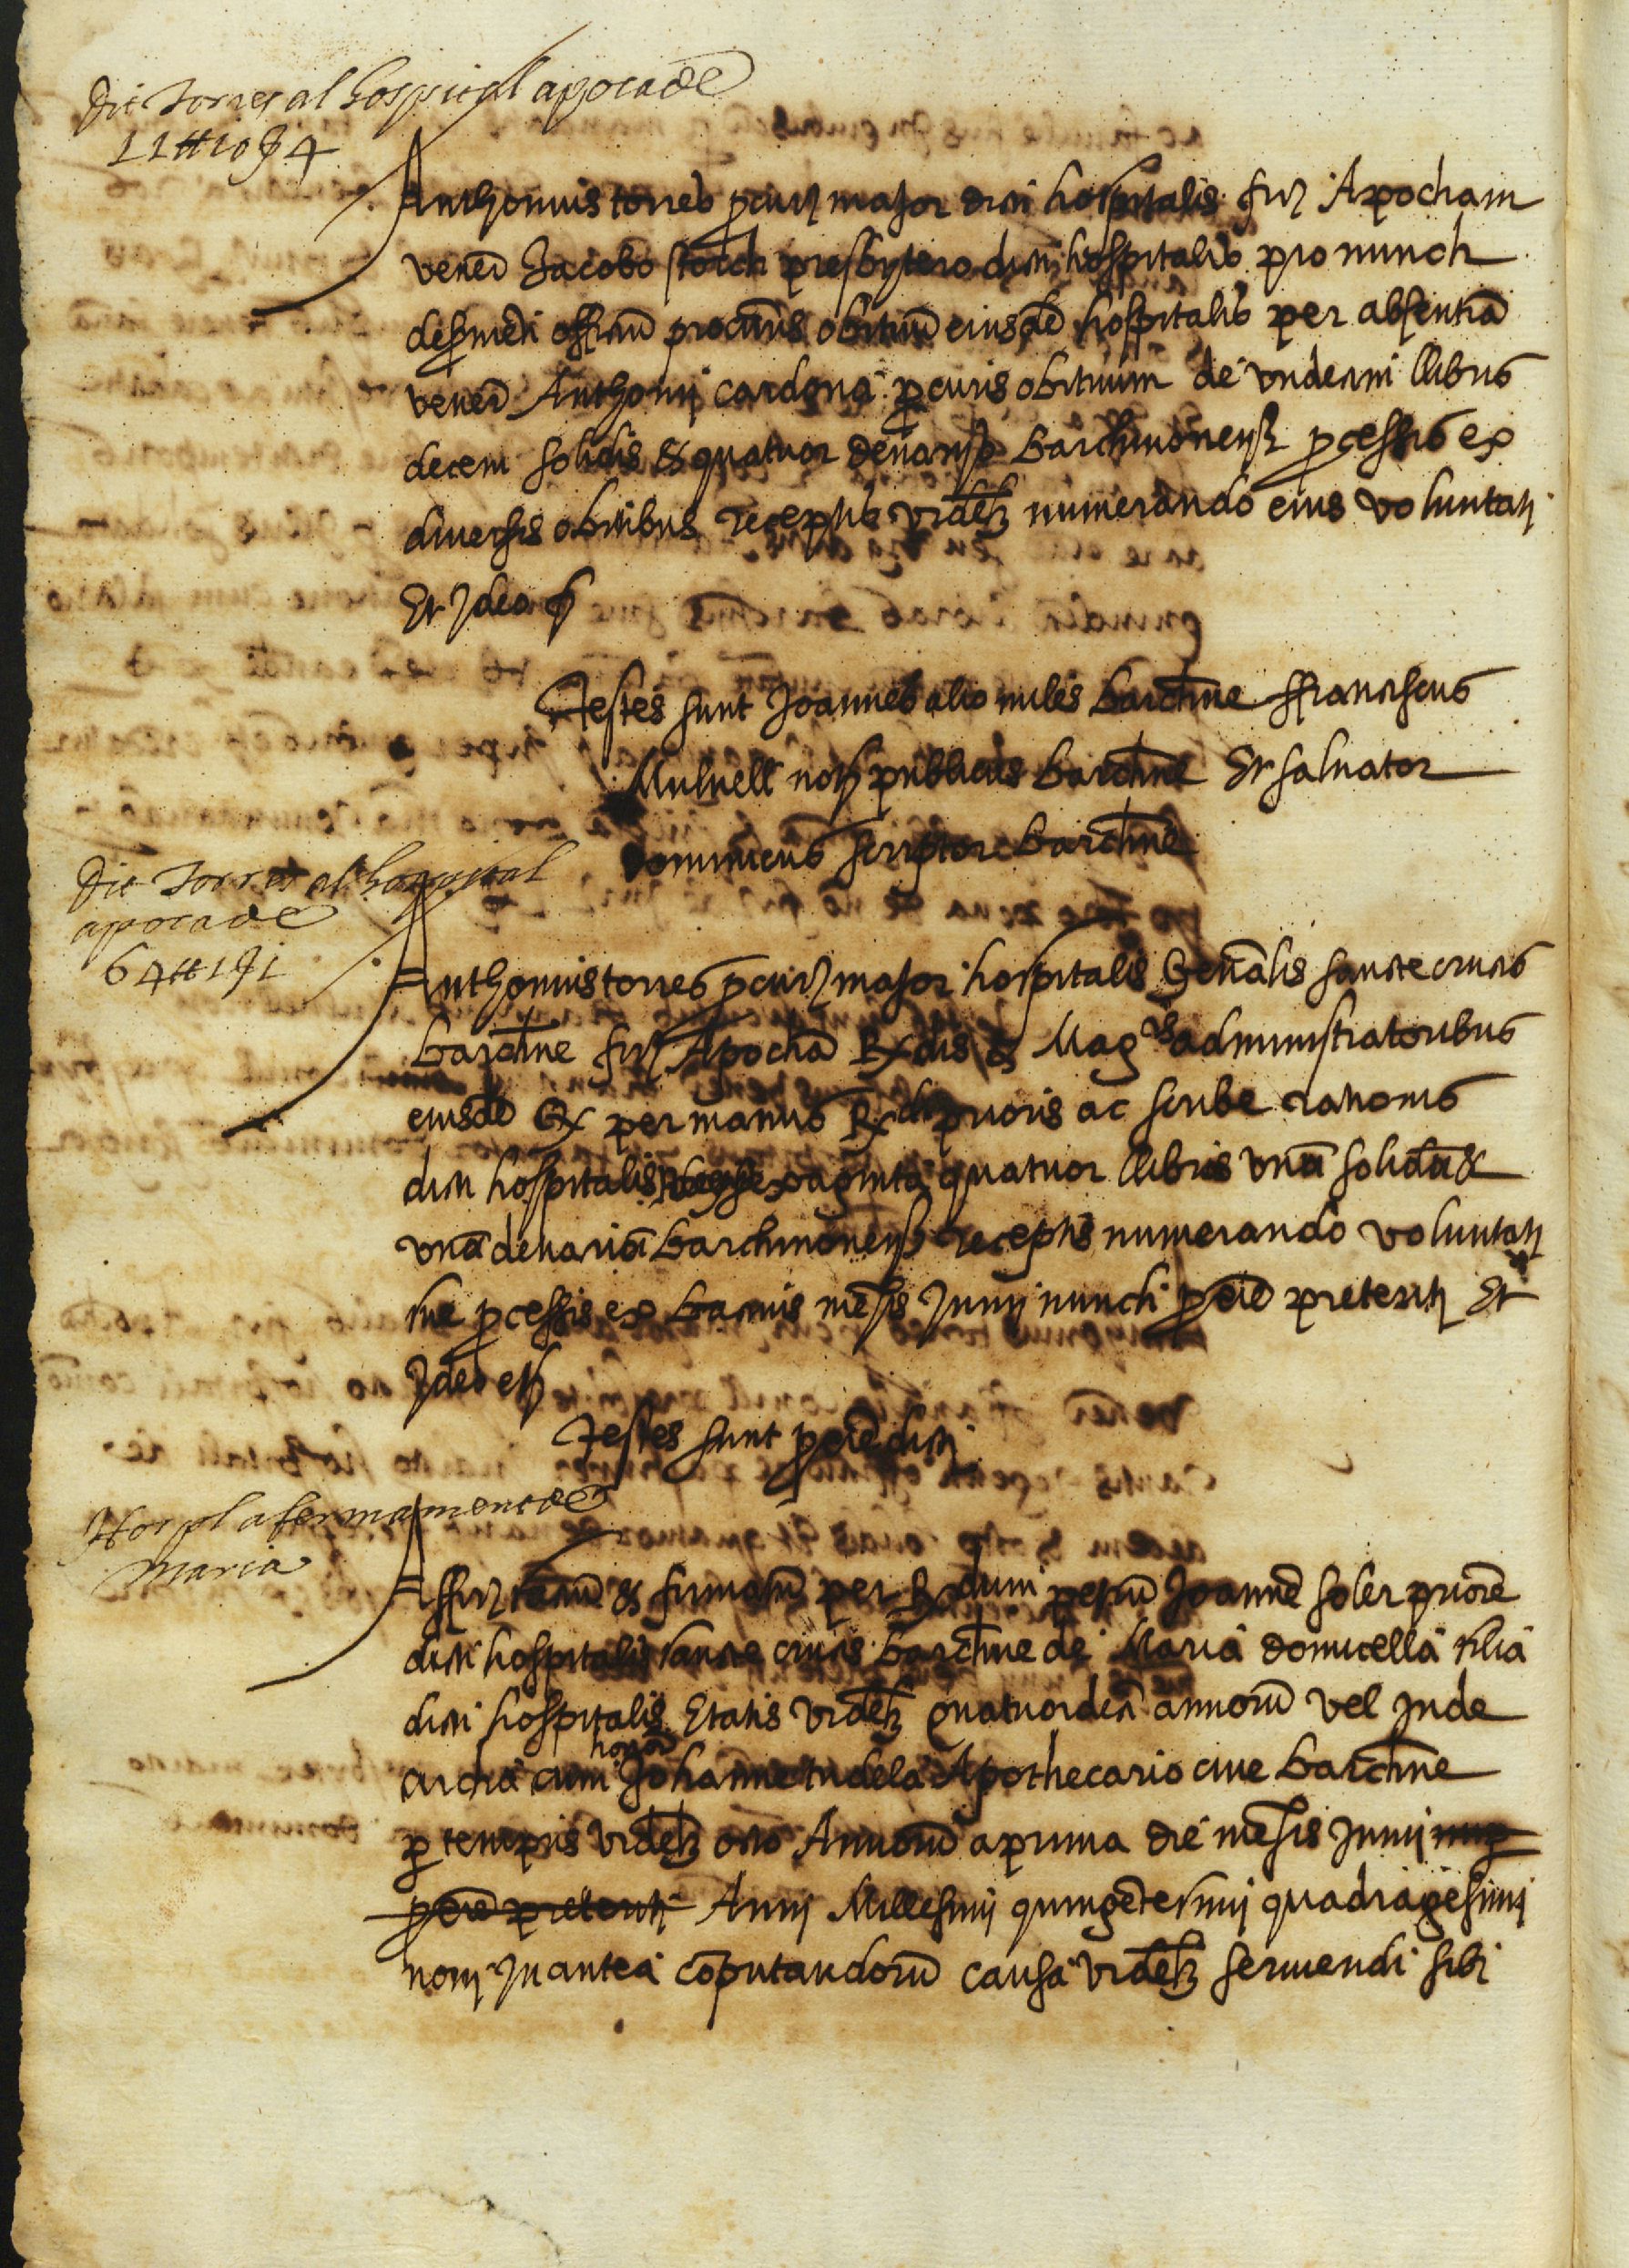 Dit Torres al hospital apoca de
11 tt 10 ß 4
Anthonius torres pcur maior dicti hospitalis fir Apocham
vener Jacobo storch presbytero dicti hospitalis pro nunch
officiu procuris obituu eiusde hospitalis per absentia
vener Anthonij cardona pcuris obituum de undecim llibris
decem solidis & quatuor denarijs barchinonens pcessis ex
diuersis obitibus receptis videlz numerando eius voluntatj
Et Ideo &
Testes sunt Joannes alio miles barchne ffranciscus
Mulnell not publicus barchne Et saluator
dominicus scriptor barchne
Dit Torres al hospital
apoca de
64 tt 1 ß 1
Anthonius torres pcur maior hospitalis Generalis sancte crucis
barchne fir Apocha Rdis & Magcis administratoribus
eiusde Ex per manus Rdi prioris ac scribe rationis
dicti hospitalis sexaginta quatuor llibris una solida &
una denaria barchinonens receptis numerando voluntatj
me pcessis ex bacinis mesis Junij nunch pxie preteritj Et
Ideo etz
Testes sunt pxie dictj
Hospl afermament de
Maria
Affir & firmatu per Rdum petru Joanne soler priore
dicti hospitalis sancte crucis barchne de Maria domicella filia
dicti hospitalis Etatis videlz quatuordeci annoru vel inde
circha cum honor Johanne tudela Apothecario ciue barchne
p tempus videlz octo Annoru a prima die mesis Junij nup
pxie preteritj Annj Millesimj quingetesimj quadragesimj
nonj In antea coputandoru causa videlz seruiendi sibj